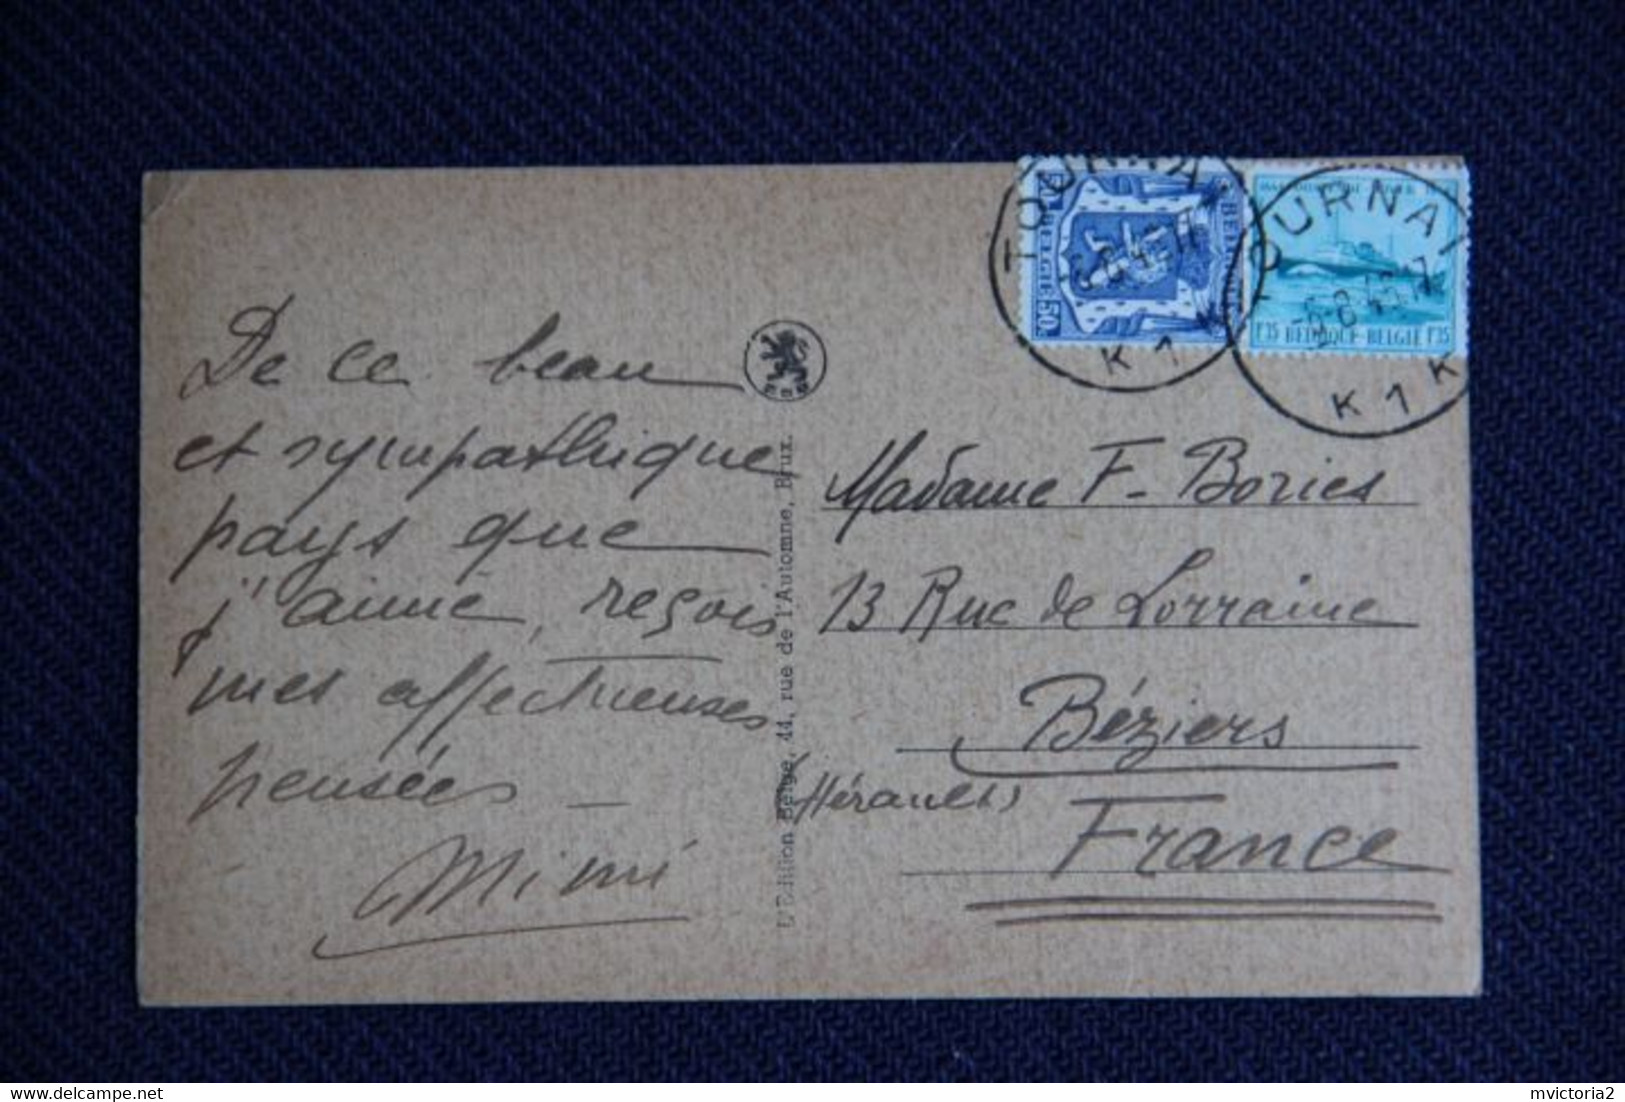 De ce beau
et sympathique
pays que
j'aime, reçois
mes affectueuses
pensées —
Mimi
L'Edition Belge, 44, rue de l'Automne, Brux.
TOURNAI
K 1 K
BELGIE 50
TOURNAI
-6-8
K 1 K
1F35 BELGIQUE-BELGIE 1F35
Madame F- Bories
13 Rue de Lorraine
Béziers
(Hérault)
France
mvictoria2